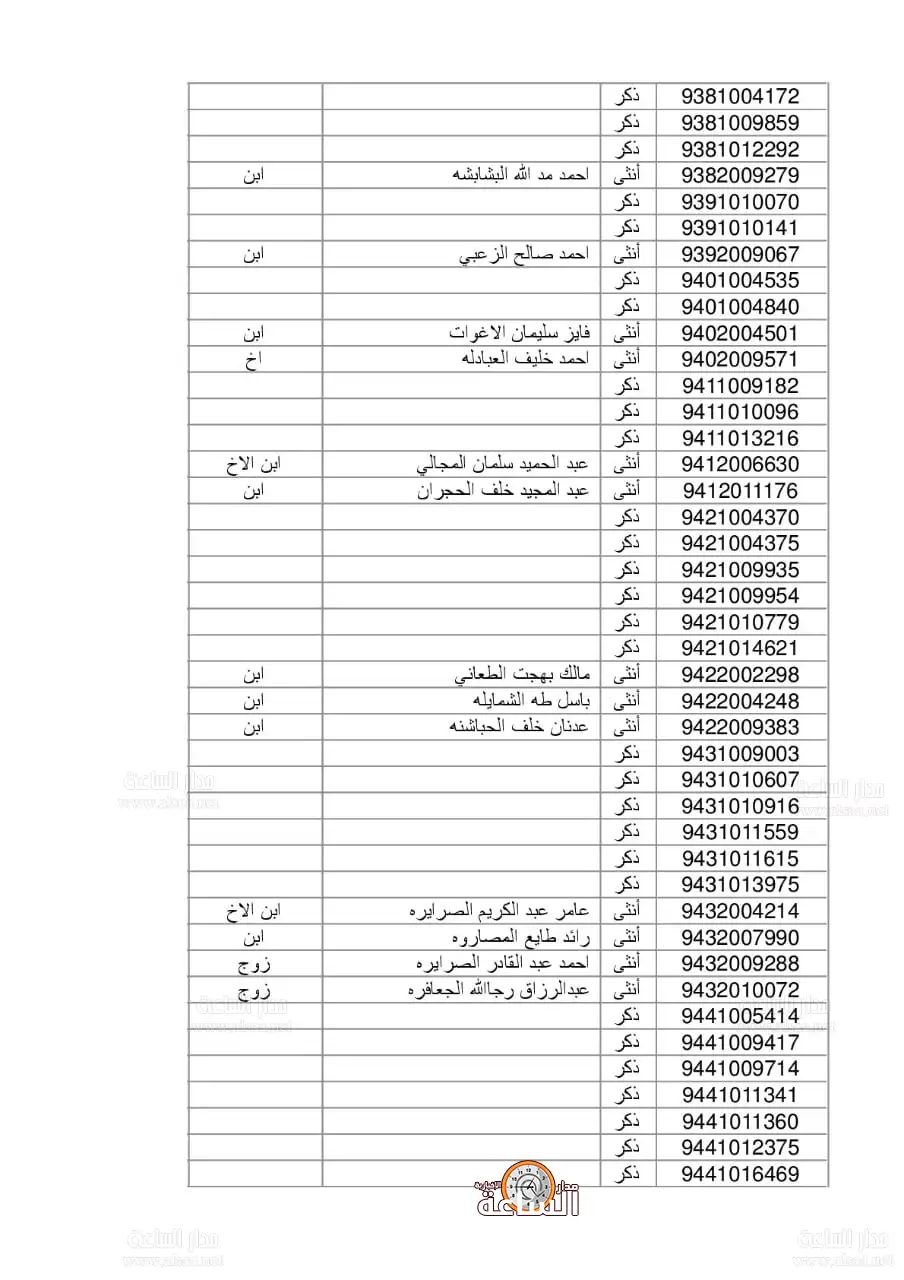 9381004172 ذكر
9381009859 ذكر
9381012292 ذكر
9382009279 أنثى احمد مد الله البشابشه ابن
9391010070 ذكر
9391010141 ذكر
9392009067 أنثى احمد صالح الزعبي ابن
9401004535 ذكر
9401004840 ذكر
9402004501 أنثى فايز سليمان الاغوات ابن
9402009571 أنثى احمد خليف العبادله اخ
9411009182 ذكر
9411010096 ذكر
9411013216 ذكر
9412006630 أنثى عبد الحميد سلمان المجالي ابن الاخ
9412011176 أنثى عبد المجيد خلف الحجران ابن
9421004370 ذكر
9421004375 ذكر
9421009935 ذكر
9421009954 ذكر
9421010779 ذكر
9421014621 ذكر
9422002298 أنثى مالك بهجت الطعاني ابن
9422004248 أنثى باسل طه الشمايله ابن
9422009383 أنثى عدنان خلف الحباشنه ابن
9431009003 ذكر
9431010607 ذكر
9431010916 ذكر
9431011559 ذكر
9431011615 ذكر
9431013975 ذكر
9432004214 أنثى عامر عبد الكريم الصرايره ابن الاخ
9432007990 أنثى رائد طايع المصاروه ابن
9432009288 أنثى احمد عبد القادر الصرايره زوج
9432010072 أنثى عبدالرزاق رجاالله الجعافره زوج
9441005414 ذكر
9441009417 ذكر
9441009714 ذكر
9441011341 ذكر
9441011360 ذكر
9441012375 ذكر
9441016469 ذكر
مدار الساعة الإخبارية
مدار الساعة
www.alsaa.net
مدار الساعة
www.alsaa.net
مدار الساعة
www.alsaa.net
مدار الساعة
www.alsaa.net
مدار الساعة
www.alsaa.net
مدار الساعة
www.alsaa.net